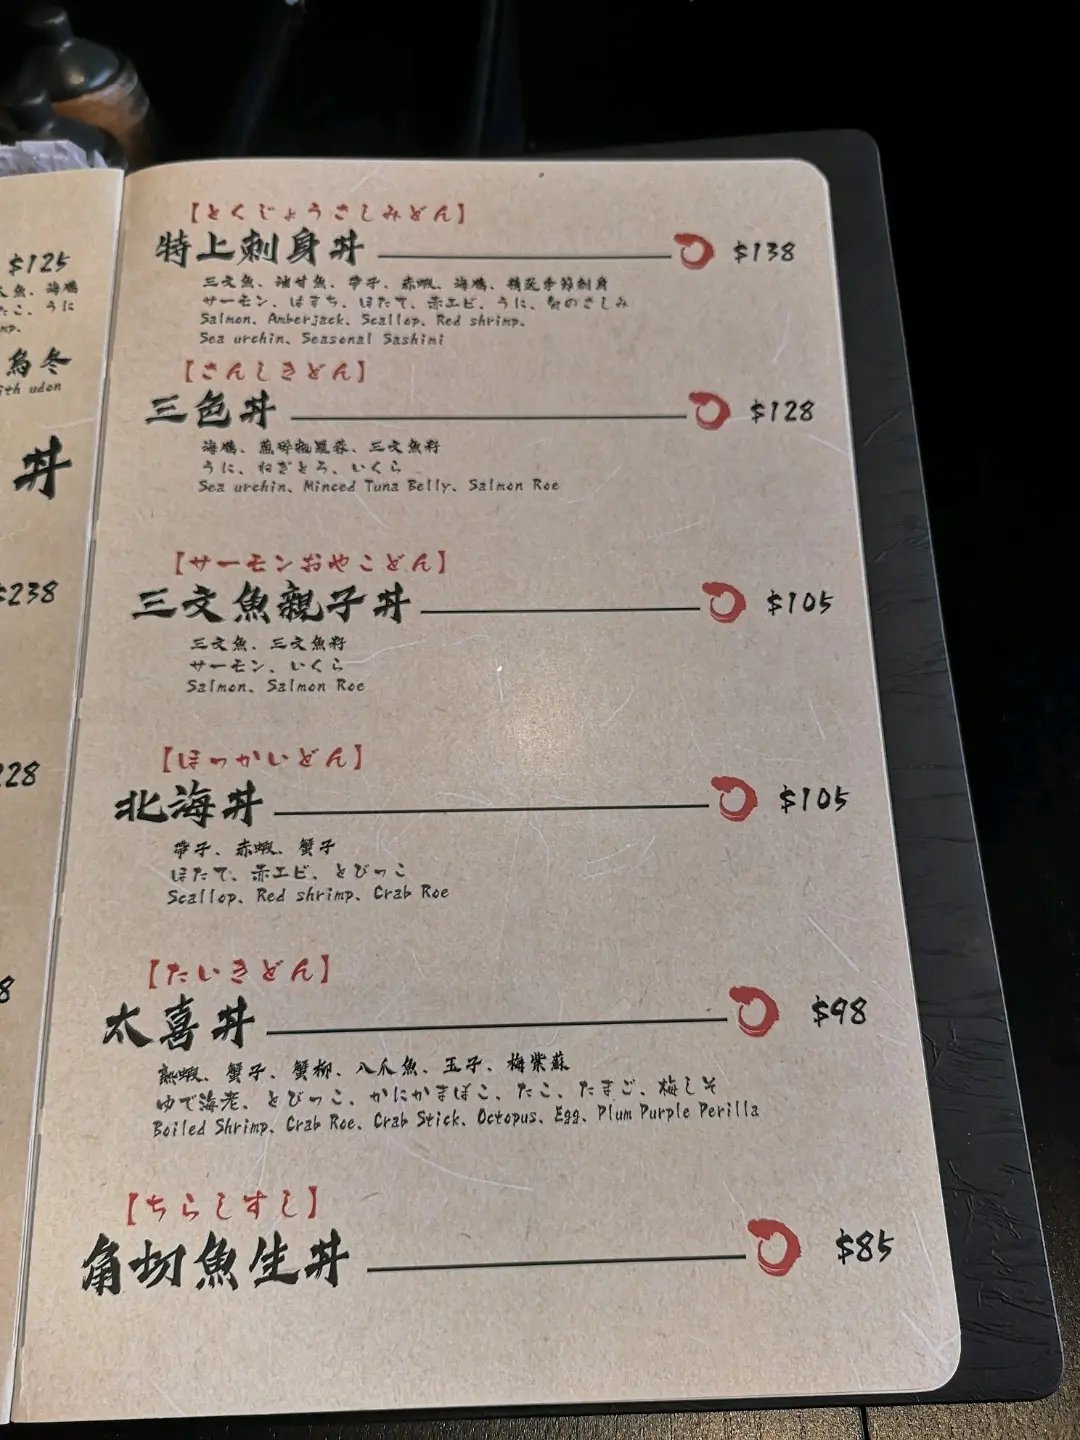 $125
魚、海膽
たこ、うに
mp、
烏冬
ith udon
丼
$238
228
8
【とくじょうさしみどん】
特上刺身丼 $138
三文魚、油甘魚、帶子、赤蝦、海膽、精選季節刺身
サーモン、はまち、ほたて、赤エビ、うに、旬のさしみ
Salmon、Amberjack、Scallop、Red shrimp、
Sea urchin、Seasonal Sashimi
【さんしきどん】
三色丼 $128
海膽、蔥碎拖羅蓉、三文魚籽
うに、ねぎとろ、いくら
Sea urchin、Minced Tuna Belly、Salmon Roe
【サーモンおやこどん】
三文魚親子丼 $105
三文魚、三文魚籽
サーモン、いくら
Salmon、Salmon Roe
【ほっかいどん】
北海丼 $105
帶子、赤蝦、蟹子
ほたて、赤エビ、とびっこ
Scallop、Red shrimp、Crab Roe
【たいきどん】
太喜丼 $98
熟蝦、蟹子、蟹柳、八爪魚、玉子、梅紫蘇
ゆで海老、とびっこ、かにかまぼこ、たこ、たまご、梅しそ
Boiled Shrimp、Crab Roe、Crab Stick、Octopus、Egg、Plum Purple Perilla
【ちらしすし】
角切魚生丼 $85